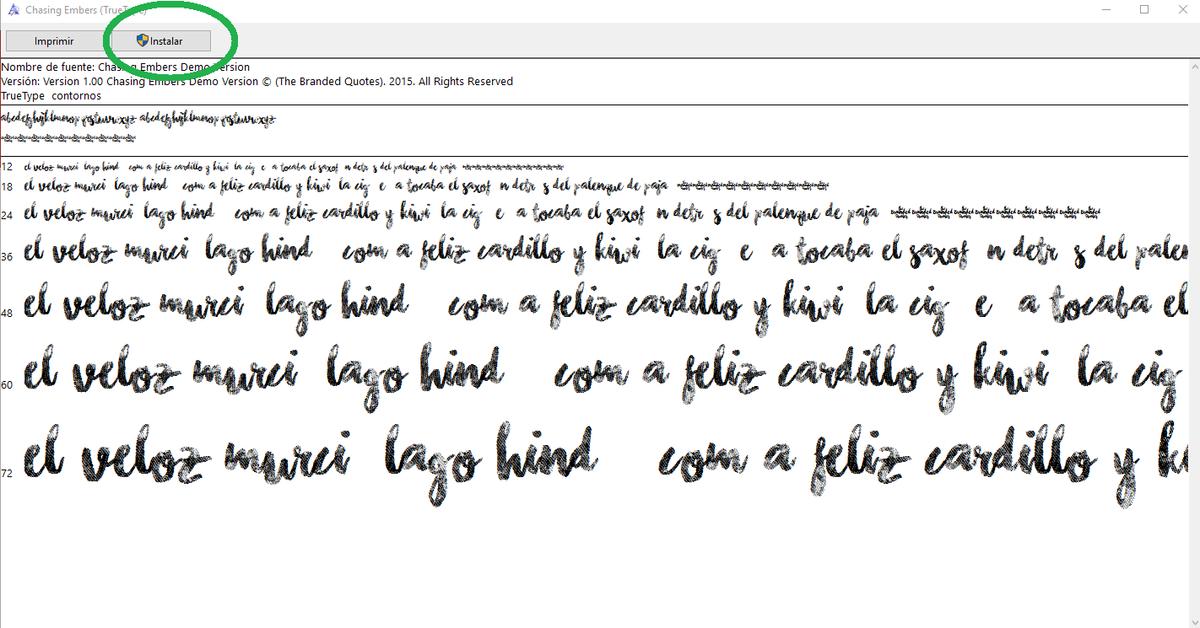 Chasing Embers (TrueType)
Imprimir
Instalar
Nombre de fuente: Chasing Embers Demo Version
Versión: Version 1.00 Chasing Embers Demo Version © (The Branded Quotes). 2015. All Rights Reserved
TrueType contornos
abcdefghijklmnopqrstuvwxyz abcdefghijklmnopqrstuvwxyz
12 el veloz murci lago hind com a feliz cardillo y kiwi la cig e a tocaba el saxof n detr s del palenque de paja
18 el veloz murci lago hind com a feliz cardillo y kiwi la cig e a tocaba el saxof n detr s del palenque de paja
24 el veloz murci lago hind com a feliz cardillo y kiwi la cig e a tocaba el saxof n detr s del palenque de paja
36 el veloz murci lago hind com a feliz cardillo y kiwi la cig e a tocaba el saxof n detr s del palen
48 el veloz murci lago hind com a feliz cardillo y kiwi la cig e a tocaba el
60 el veloz murci lago hind com a feliz cardillo y kiwi la cig
72 el veloz murci lago hind com a feliz cardillo y k